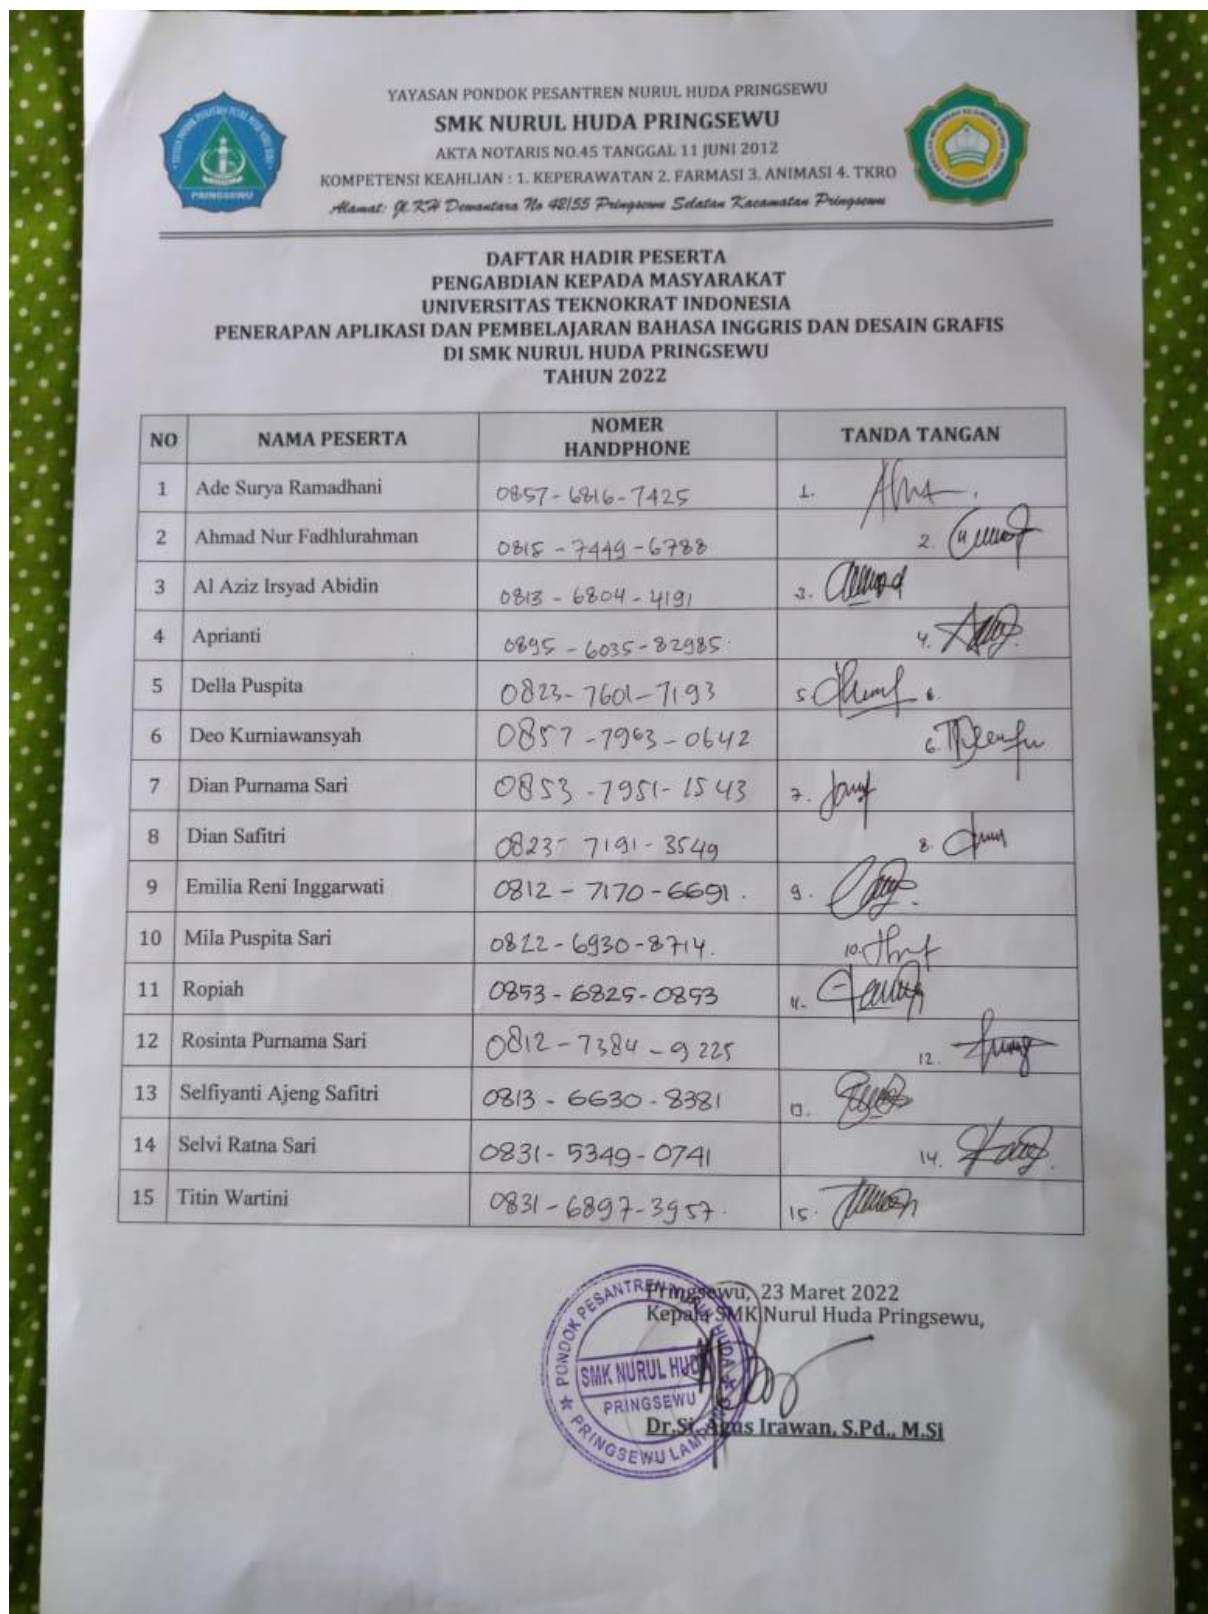 YAYASAN PONDOK PESANTREN NURUL HUDA PRINGSEWU
SMK NURUL HUDA PRINGSEWU
AKTA NOTARIS NO.45 TANGGAL 11 JUNI 2012
KOMPETENSI KEAHLIAN : 1. KEPERAWATAN 2. FARMASI 3. ANIMASI 4. TKRO
Alamat: Jl. KH Dewantara No 42/55 Pringsewu Selatan Kacamatan Pringsewu
PRINGSEWU
DAFTAR HADIR PESERTA
PENGABDIAN KEPADA MASYARAKAT
UNIVERSITAS TEKNOKRAT INDONESIA
PENERAPAN APLIKASI DAN PEMBELAJARAN BAHASA INGGRIS DAN DESAIN GRAFIS
DI SMK NURUL HUDA PRINGSEWU
TAHUN 2022
NO NAMA PESERTA NOMER HANDPHONE TANDA TANGAN
1 Ade Surya Ramadhani 0857-6816-7425 1.
2 Ahmad Nur Fadhlurahman 0815-7449-6788 2.
3 Al Aziz Irsyad Abidin 0813-6804-4191 3.
4 Aprianti 0895-6035-82985. 4.
5 Della Puspita 0823-7601-7193 5. 6.
6 Deo Kurniawansyah 0857-7963-0642 6.
7 Dian Purnama Sari 0853-7951-1543 7.
8 Dian Safitri 0823-7191-3549 8.
9 Emilia Reni Inggarwati 0812-7170-6691. 9.
10 Mila Puspita Sari 0822-6930-8714. 10.
11 Ropiah 0853-6825-0853 11.
12 Rosinta Purnama Sari 0812-7384-9225 12.
13 Selfiyanti Ajeng Safitri 0813-6630-8381 13.
14 Selvi Ratna Sari 0831-5349-0741 14.
15 Titin Wartini 0831-6897-3957. 15.
Pringsewu, 23 Maret 2022
Kepala SMK Nurul Huda Pringsewu,
PONDOK PESANTREN NURUL HUDA
SMK NURUL HUDA
PRINGSEWU
PRINGSEWU LAMPUNG
Dr.Si. Agus Irawan, S.Pd., M.Si